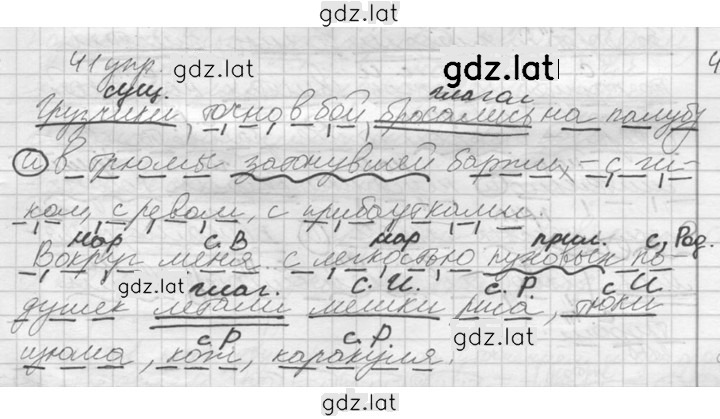 gdz.lat
41 упр. gdz.lat gdz.lat
сущ. глагол
Грузчики, точно в бой, бросались на палубу
и в трюмы затонувшей баржи, - с ги-
ком, с ревом, с прибаутками.
нар с. В нар прил. с, Род.
Вокруг меня с легкостью пуховых по-
gdz.lat глаг. с. И. с. Р. с И
душек летали мешки риса, тюки
с. Р с. Р. gdz.lat
изюма, кож, каракуля.
gdz.lat